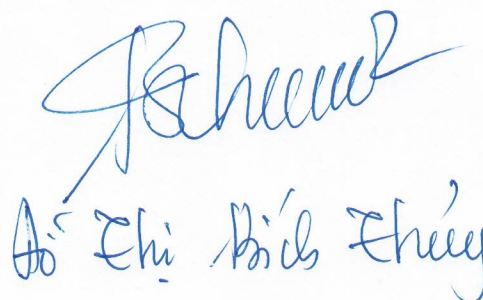 Đỗ Thị Bích Thủy